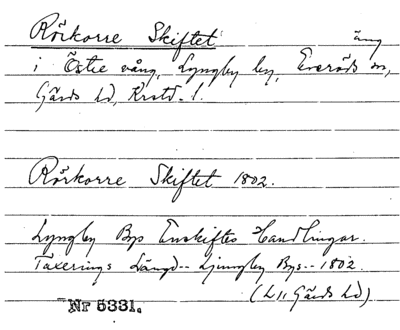 Rörkorre Skiftet
äng
i Östre vång, Lyngby by, Everöds sn,
Gärds hd, Krstd. l.
Rörkorre Skiftet 1802.
Lyngby Bys Enskiftes Handlingar.
Taxerings Längd -- Ljungby Bys -- 1802
(L11 Gärds hd)
Nr 5331.